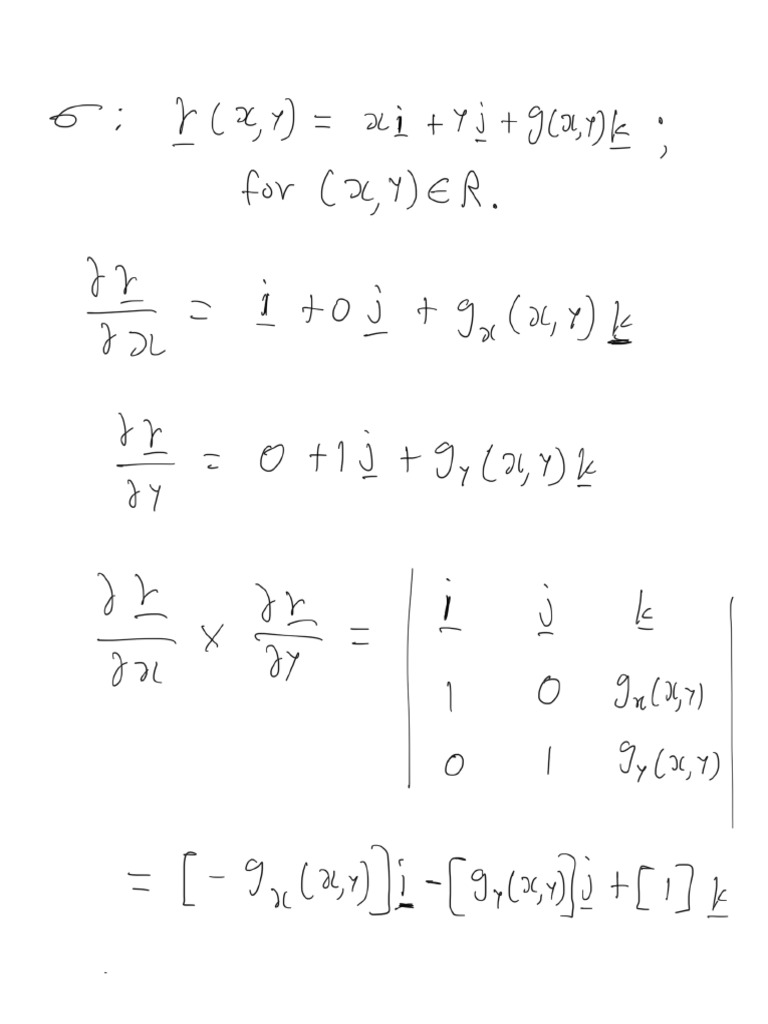 σ: r(x,y) = xi + yj + g(x,y)k ;
for (x,y) ∈ R.
∂r/∂x = i + 0j + gₓ(x,y)k
∂r/∂y = 0 + 1j + g_y(x,y)k
∂r/∂x × ∂r/∂y = | i j k |
| 1 0 gₓ(x,y) |
| 0 1 g_y(x,y) |
= [-gₓ(x,y)]i - [g_y(x,y)]j + [1]k